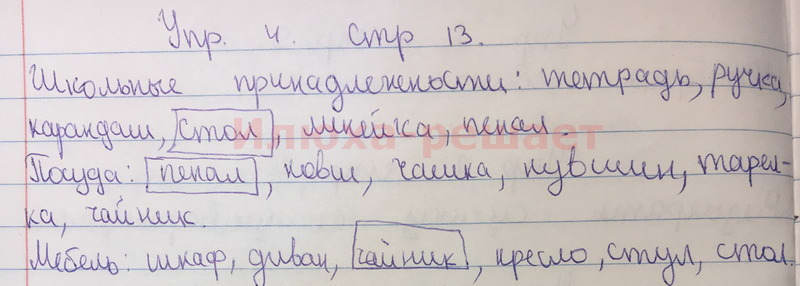 Упр. 4. стр 13.
Школьные принадлежности: тетрадь, ручка,
карандаш, стол, линейка, пенал.
Илюха решает
Посуда: пенал, ковш, чашка, кувшин, тарел-
ка, чайник.
Мебель: шкаф, диван, чайник, кресло, стул, стол.